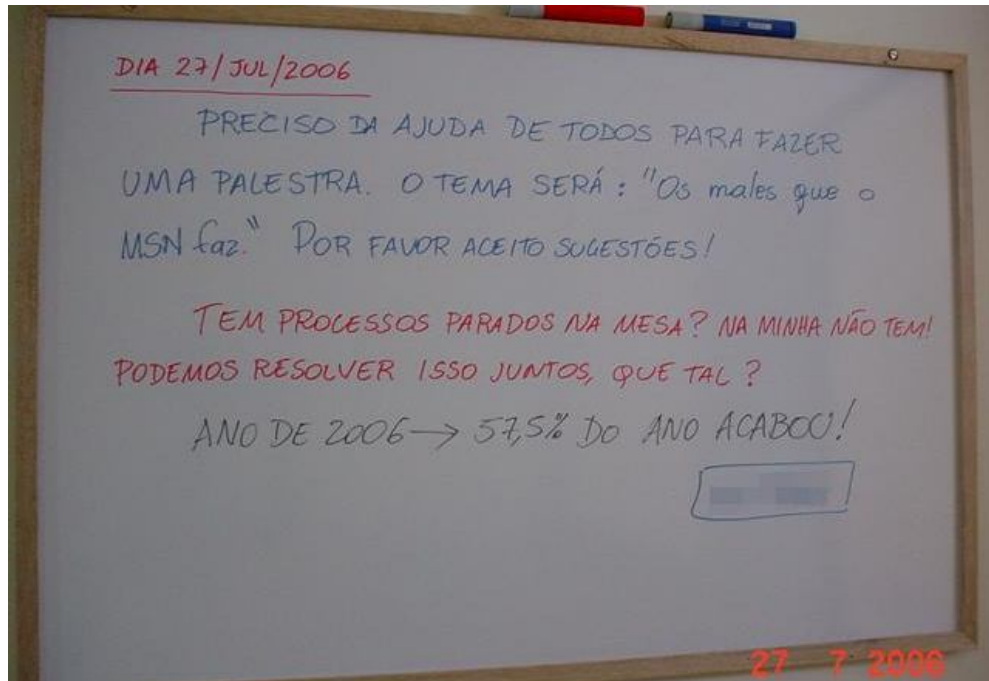 DIA 27/JUL/2006
PRECISO DA AJUDA DE TODOS PARA FAZER
UMA PALESTRA. O TEMA SERÁ: "Os males que o
MSN faz." POR FAVOR ACEITO SUGESTÕES!
TEM PROCESSOS PARADOS NA MESA? NA MINHA NÃO TEM!
PODEMOS RESOLVER ISSO JUNTOS, QUE TAL?
ANO DE 2006 → 57,5% DO ANO ACABOU!
27 7 2006